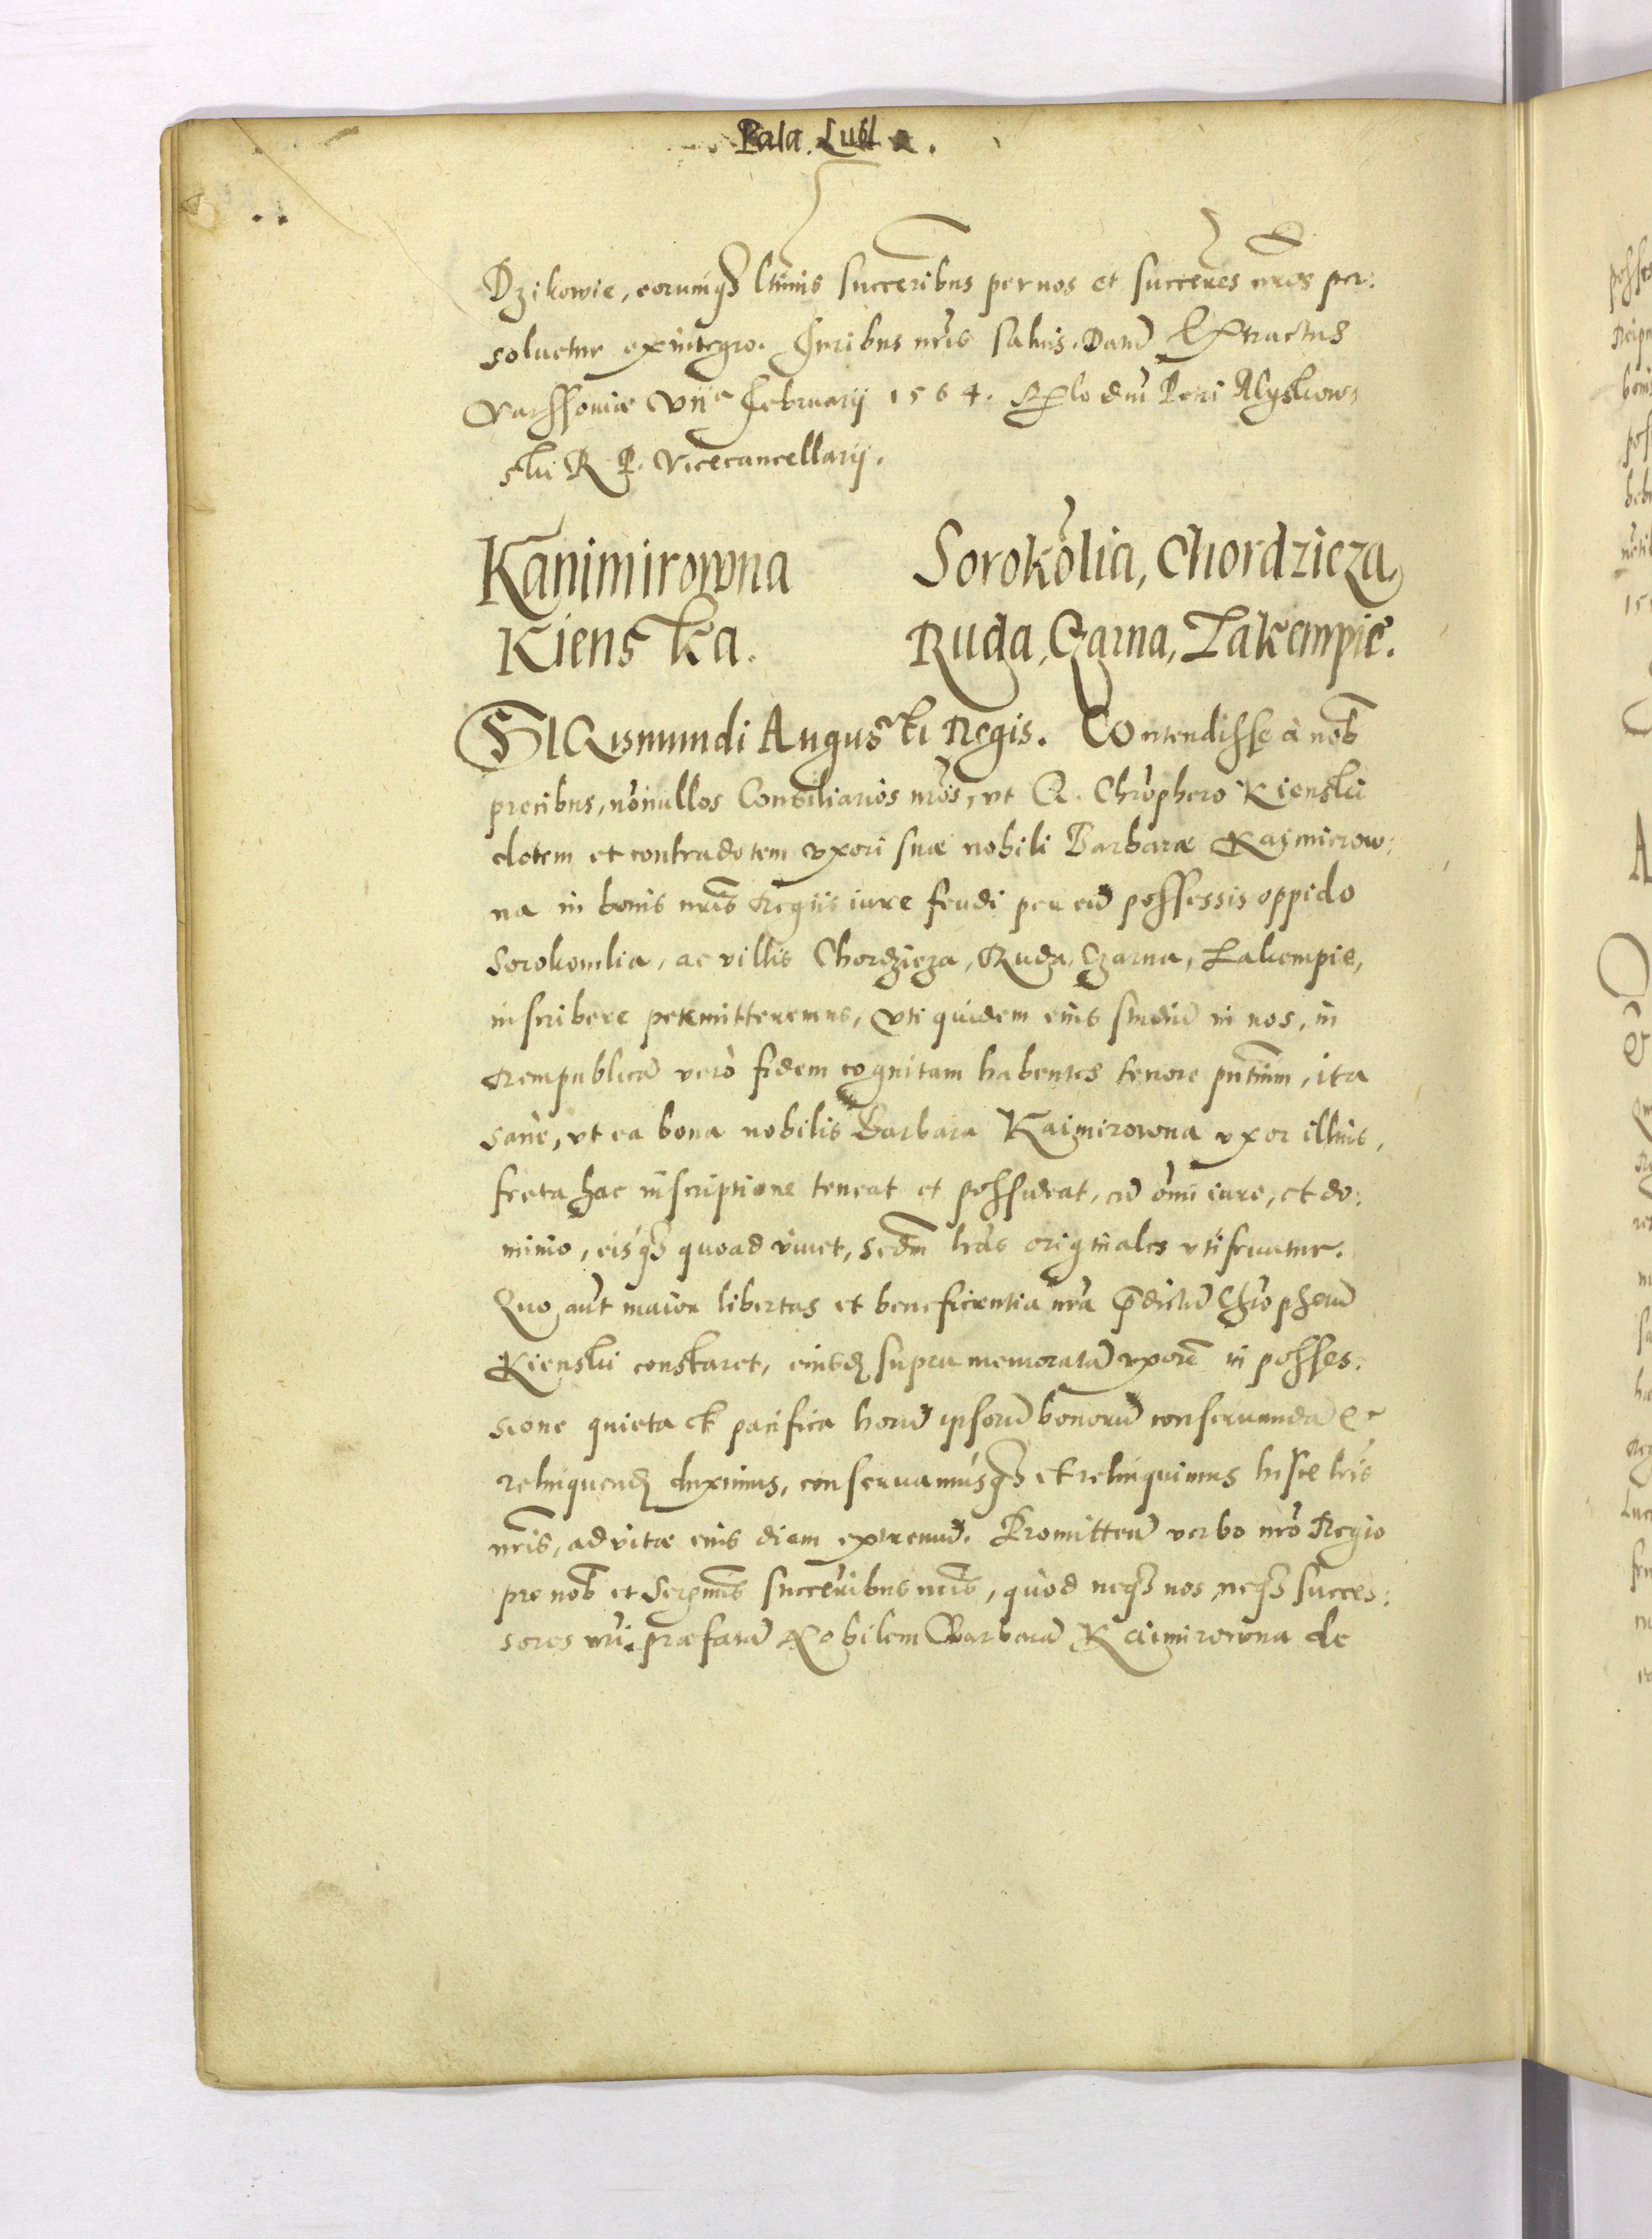 Pala. Lubl.
Dzikowie, eorumq3 ltimis succeribus per nos et succeres nros per:
soluetur ex integro. Iuribus nris saluis. Datũ Extractus
Varssoniæ VIIa Februarij 1564. Rlo dni Petri Myskow:
skii R. P. Vicecancellarij.
Kanimirowna
Kienska.
Sorokolia, Chordzieza,
Ruda, Czarna, Lakempie.
SIGIsmundi Augusti Regis. Contendisse à nob
precibus, nõnullos Consiliarios nros, vt G. Chrophero Kienski
dotem et contradotem vxori suæ nobili Barbaræ Kazmierow:
na in bonis nris Regiis iure feudi per eũ possessis oppido
Sorokomlia, ac villis Chordzieza, Ruda, Czarna, Lakempie,
inscribere permitteremus, Vti quidem eius studiũ in nos, in
Rempublicã verò fidem cognitam habentes tenore pntium, ita
sane, vt ea bona nobilis Barbara Kaimirowna vxor illius,
freta hac inscriptione teneat et possideat, cũ omi iure, et do:
minio, eisq3 quoad viuet, scdm lras originales vti fruatur.
Quo aut maior libertas et beneficentia nra pdictũ Chropherũ
Kienski constaret, eiusd supra memoratã vxorẽ in posses:
sione quieta et pacifica horũ ipsorũ bonorũ conseruandã &
relinquend duximus, conseruamusq3 et relinquimus hisce lris
nris, ad vitæ eius diem extremũ. Promitten verbo nro Regio
pro nob et Sereniss succeribus nris, quòd neq3 nos, neq3 succes:
sores nri præfatã Nobilem Barbarã Kaimirowna de